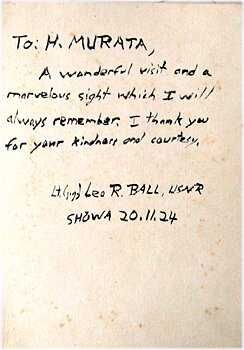 To: H. MURATA,
A wonderful visit and a
marvelous sight which I will
always remember. I thank you
for your kindness and courtesy.
Lt(jg) Leo R. BALL, USNR
SHŌWA 20.11.24